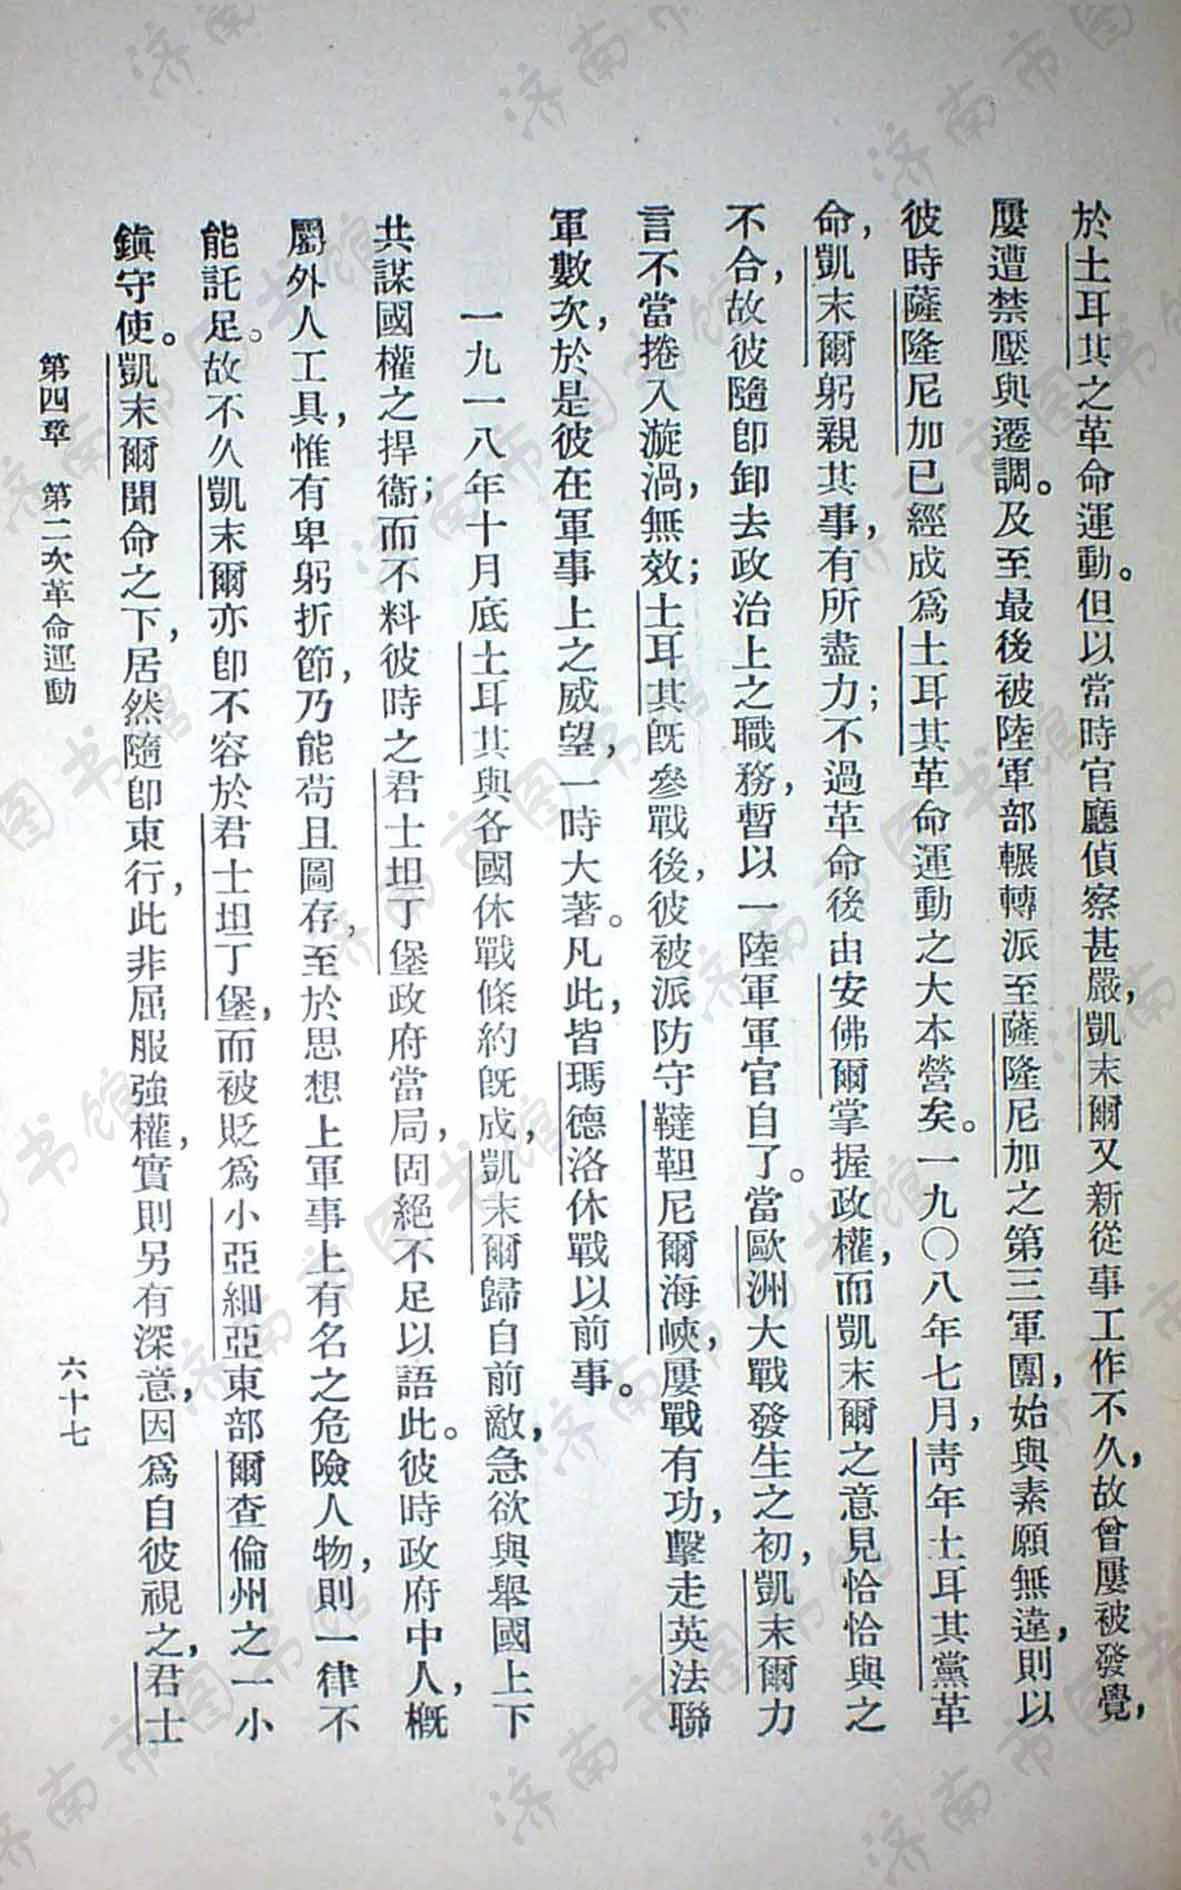 於土耳其之革命運動。但以當時官廳偵察甚嚴，凱末爾又新從事工作不久，故曾屢被發覺，
屢遭禁壓與遷調。及至最後被陸軍部輾轉派至薩隆尼加之第三軍團，始與素願無違，則以
彼時薩隆尼加已經成爲土耳其革命運動之大本營矣。一九〇八年七月，青年土耳其黨革
命，凱末爾躬親其事，有所盡力；不過革命後由安佛爾掌握政權，而凱末爾之意見恰恰與之
不合，故彼隨卽卸去政治上之職務，暫以一陸軍軍官自了。當歐洲大戰發生之初，凱末爾力
言不當捲入漩渦，無效；土耳其旣參戰後，彼被派防守韃靼尼爾海峽，屢戰有功，擊走英法聯
軍數次，於是彼在軍事上之威望，一時大著。凡此，皆瑪德洛休戰以前事。
一九一八年十月底土耳其與各國休戰條約旣成，凱末爾歸自前敵，急欲與舉國上下
共謀國權之捍衞；而不料彼時之君士坦丁堡政府當局，固絕不足以語此。彼時政府中人，槪
屬外人工具，惟有卑躬折節，乃能苟且圖存，至於思想上軍事上有名之危險人物，則一律不
能託足。故不久凱末爾亦卽不容於君士坦丁堡，而被貶爲小亞細亞東部爾查倫州之一小
鎭守使。凱末爾聞命之下，居然隨卽東行，此非屈服強權，實則另有深意，因爲自彼視之，君士
第四章　第二次革命運動
六十七
济南市图书馆